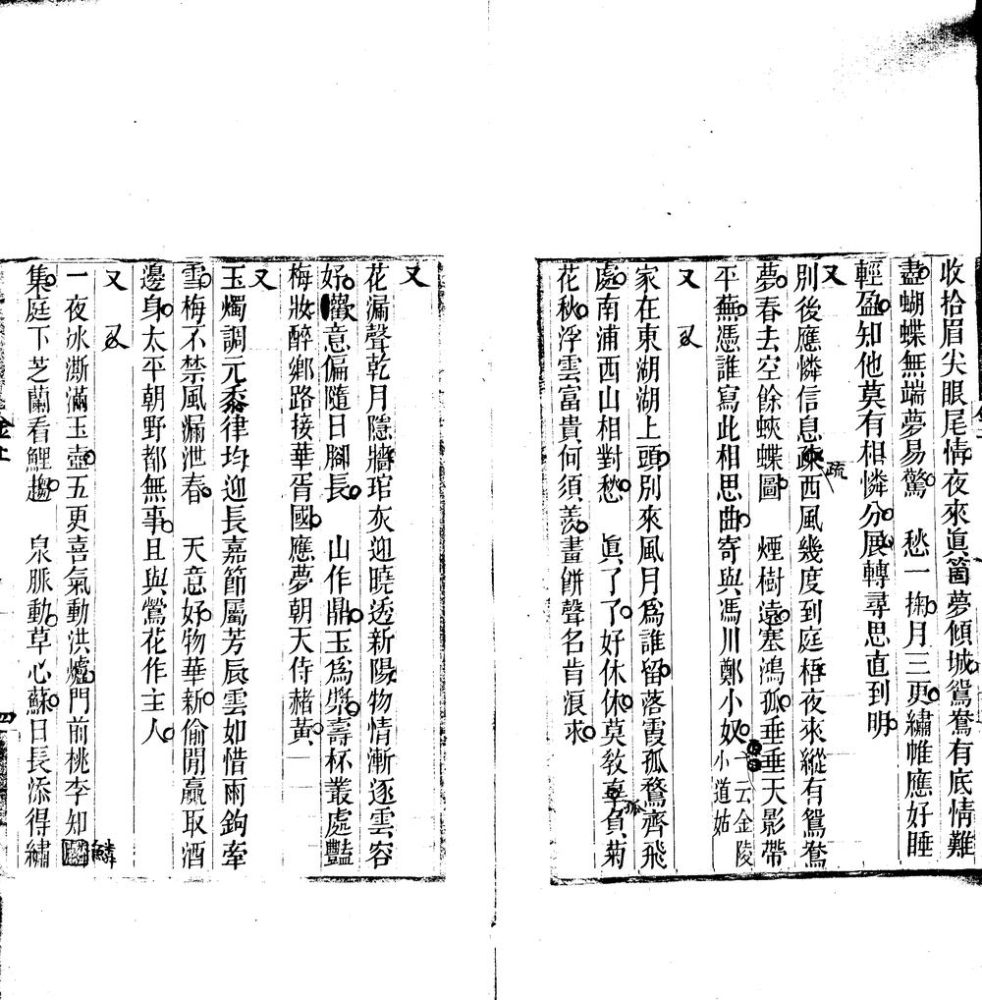 收拾眉尖眼尾情夜來眞箇夢傾城鴛鴦有底情難
盡蝴蝶無端夢易驚　愁一掬月三更繡帷應好睡
輕盈知他莫有相憐分展轉尋思直到明
又
別後應憐信息疎西風幾度到庭梧夜來縱有鴛鴦
疏
夢春去空餘蛺蝶圖　煙樹遠塞鴻孤垂垂天影帶
平蕪憑誰寫此相思曲寄與馮川鄭小奴一云金陵
小道姑
又
家在東湖湖上頭別來風月爲誰留落霞孤鶩齊飛
處南浦西山相對愁　眞了了好休休莫敎辜負菊
花秋浮雲富貴何須羨畫餠聲名肯浪求
又
花漏聲乾月隱牆琯灰迎曉透新陽物情漸逐雲容
好歡意偏隨日腳長　山作鼎玉爲漿壽杯叢處豔
梅妝醉鄉路接華胥國應夢朝天侍赭黃
又
玉燭調元黍律均迎長嘉節屬芳辰雲如惜雨鉤牽
雪梅不禁風漏泄春　天意好物華新偷閒贏取酒
邊身太平朝野都無事且與鶯花作主人
又
一夜冰澌滿玉壺五更喜氣動洪爐門前桃李知
麟
集庭下芝蘭看鯉趨　泉脈動草心蘇日長添得繡